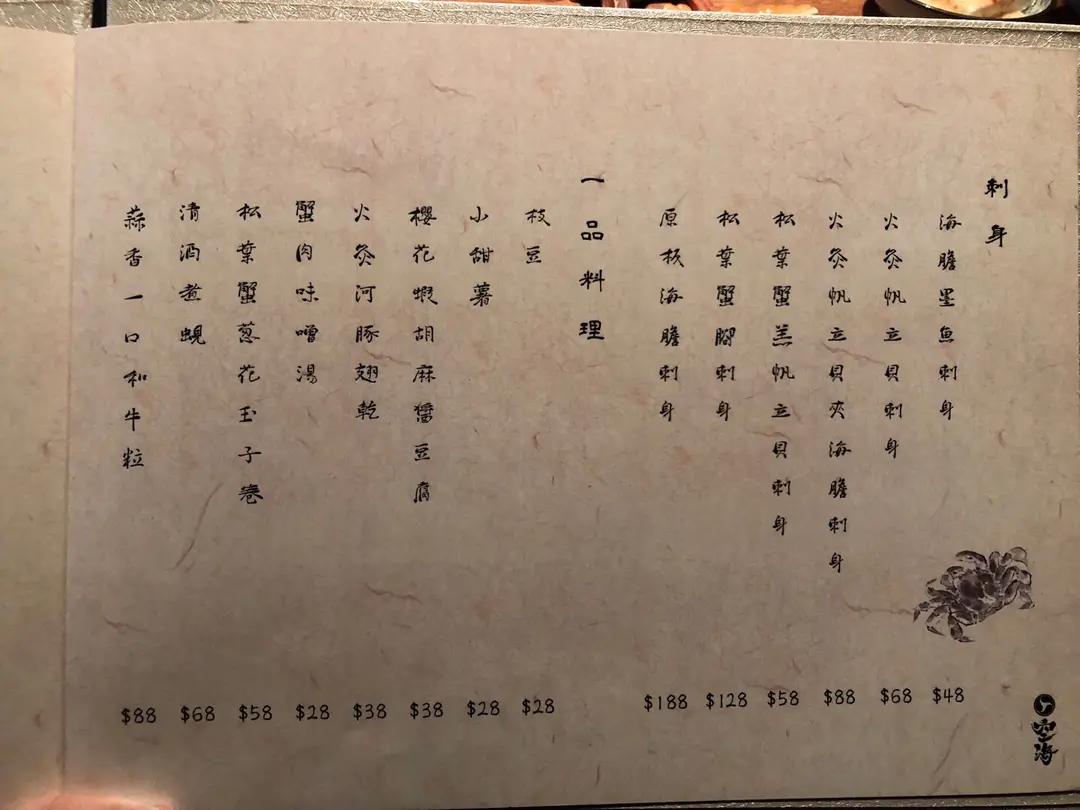 刺身
海膽墨魚刺身
$48
火炙帆立貝刺身
$68
火炙帆立貝夾海膽刺身
$88
松葉蟹羔帆立貝刺身
$58
松葉蟹腳刺身
$128
原板海膽刺身
$188
一品料理
枝豆
$28
小甜薯
$28
櫻花蝦胡麻醬豆腐
$38
火炙河豚翅乾
$38
蟹肉味噌湯
$28
松葉蟹蔥花玉子卷
$58
清酒煮蜆
$68
蒜香一口和牛粒
$88
空海